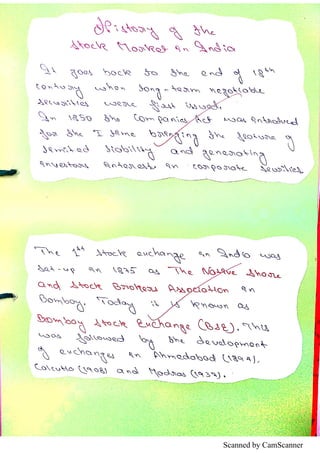 History of the
Stock Market in India
It goes back to the end of 18th
century when long-term negotiable
securities were first issued.
In 1850 the Companies Act was introduced
for the I time bringing the feature of
limited liability and generating
investors interest in corporate securities
The 1st stock exchange in India was
set-up in 1875 as The Native Share
and Stock Brokers Association in
Bombay. Today it is known as
Bombay Stock Exchange (BSE). This
was followed by the development
of exchanges in Ahmedabad (1894),
Calcutta (1908) and Madras (1937).
Scanned by CamScanner